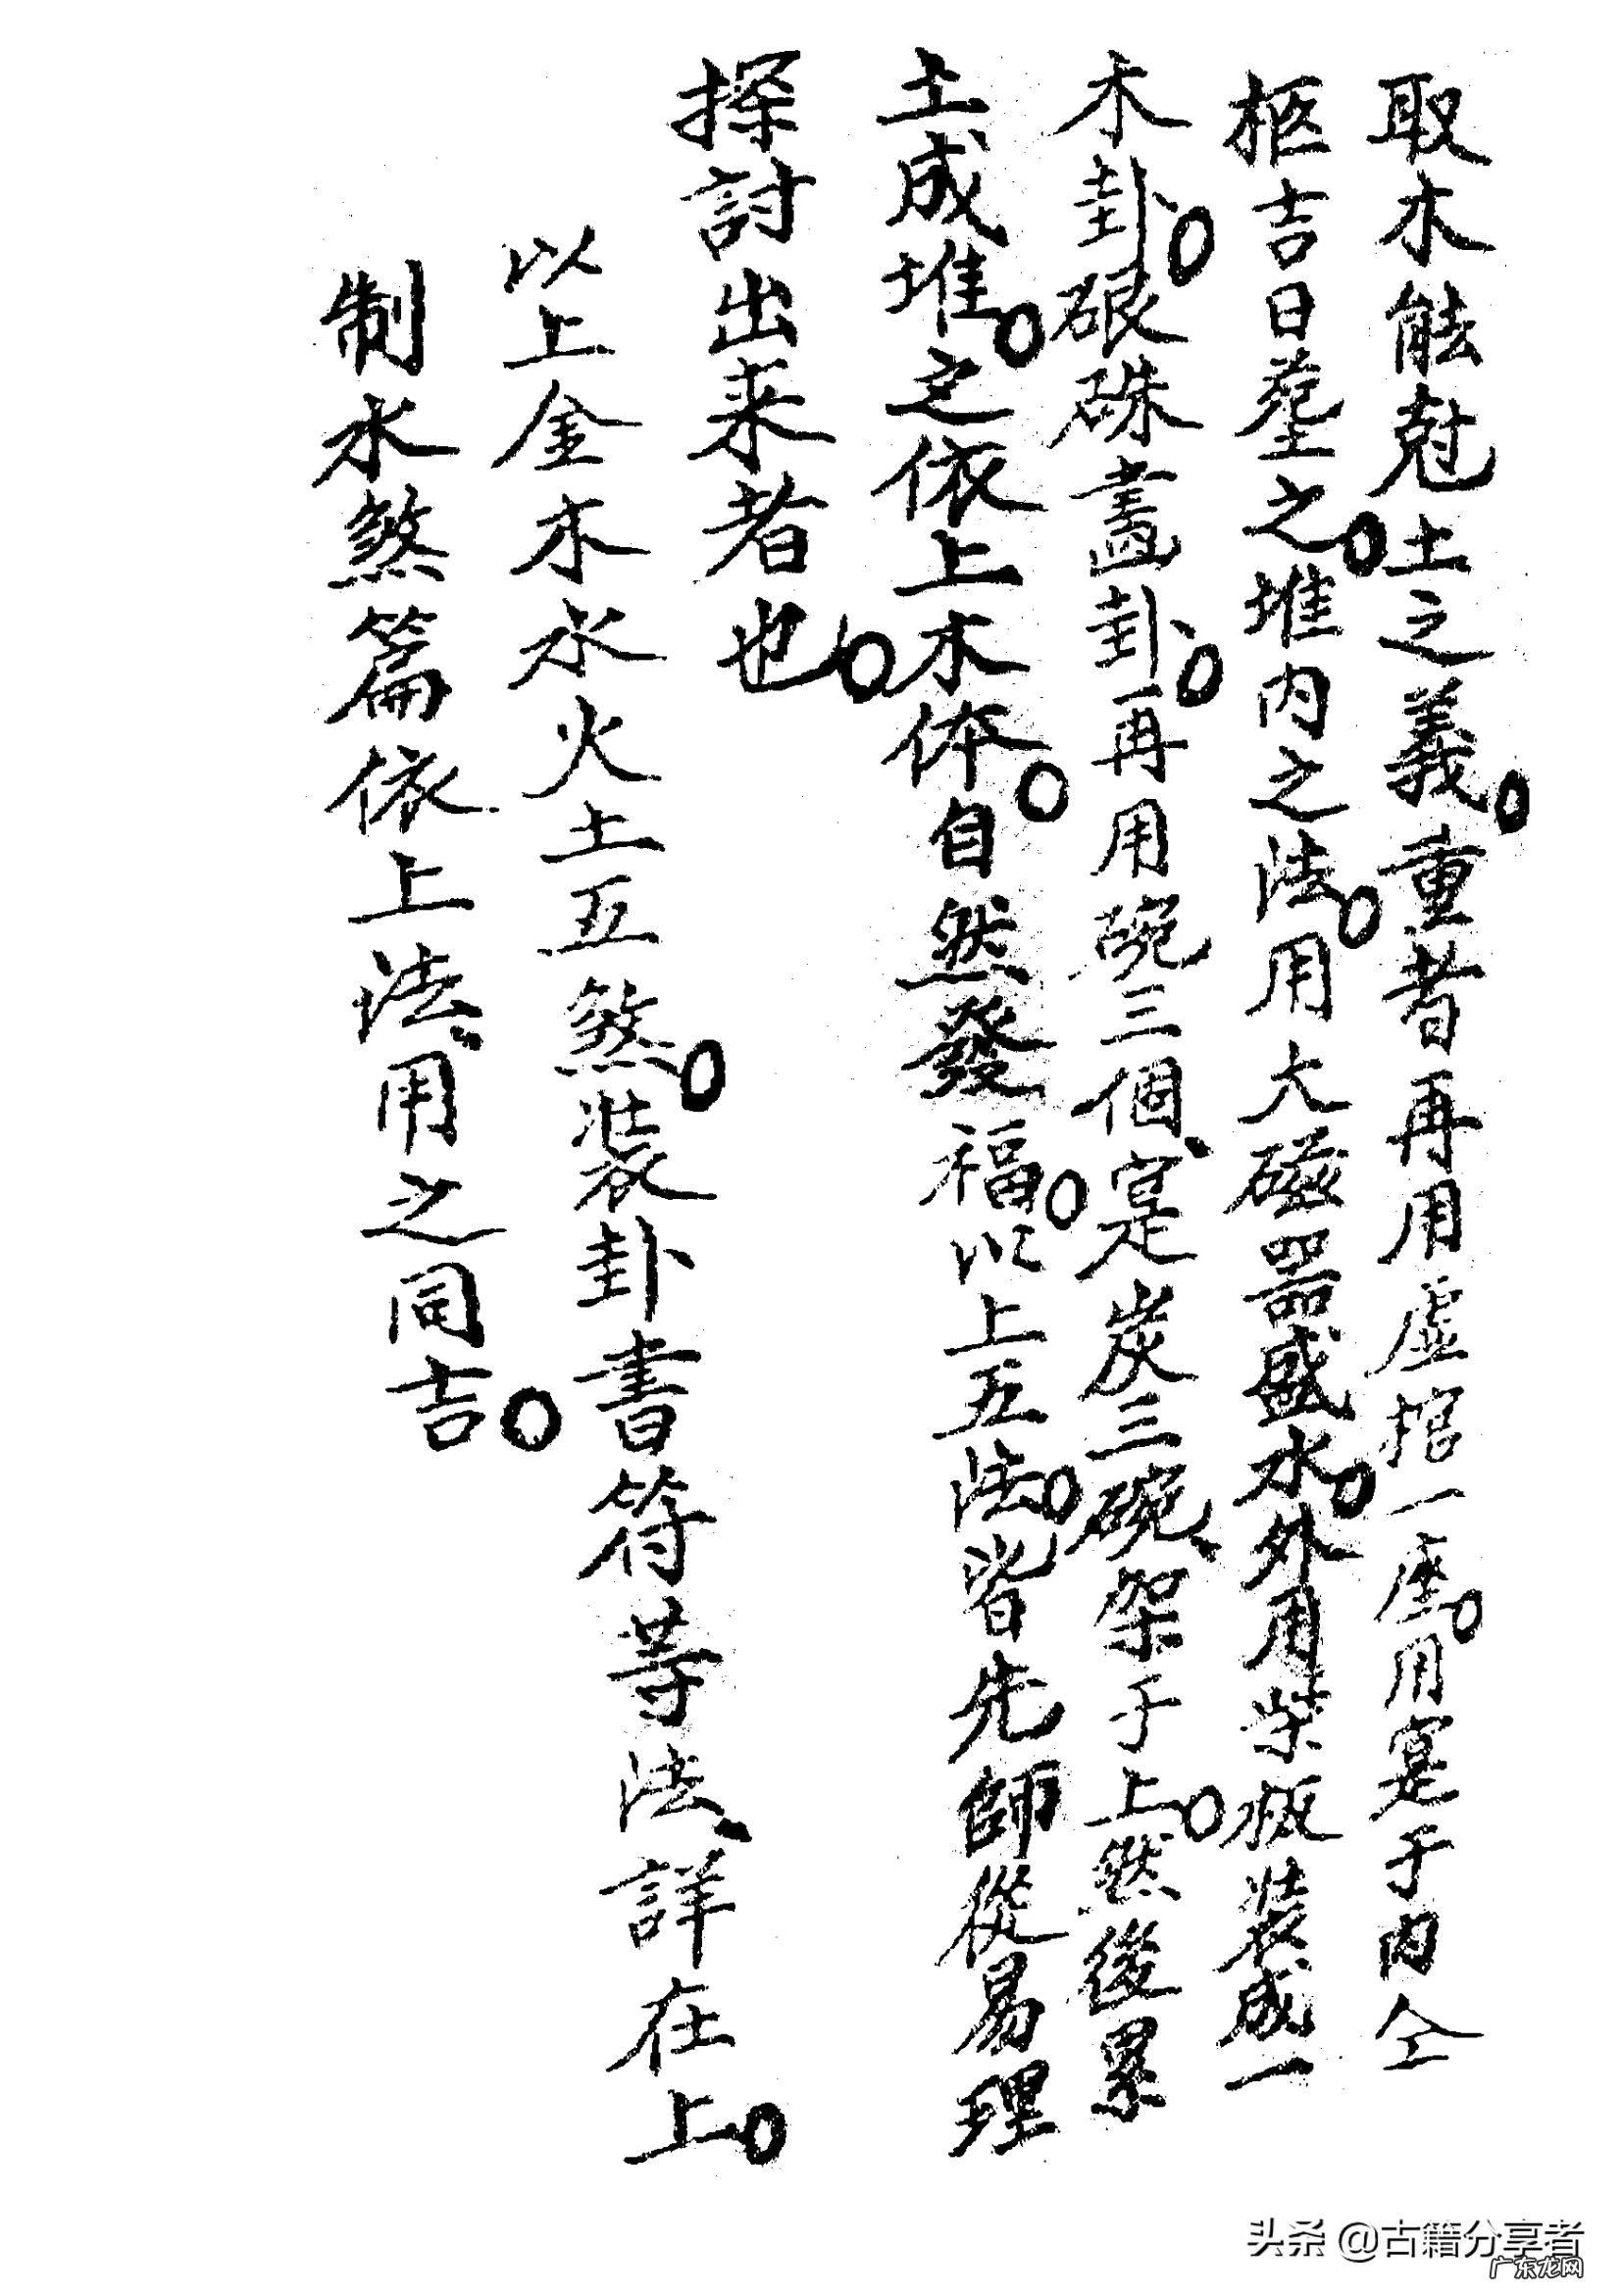 取木能尅土之義。重者再用虛棺一座。用寔于內仝
柩吉日塟之。堆內之法。用大磁器盛水。外用柴板装成一
木卦。硍硃畵卦。再用碗三個、寔炭三碗、架于上。然後累
土成堆。定依上木体。自然發福。以上五法。皆先師從易理
探討出来者也。
以上金木水火土五煞。装卦書符䓁法、詳在上。
制水煞篇依上法、用之同吉。
头条 @古籍分享者
广东龙网